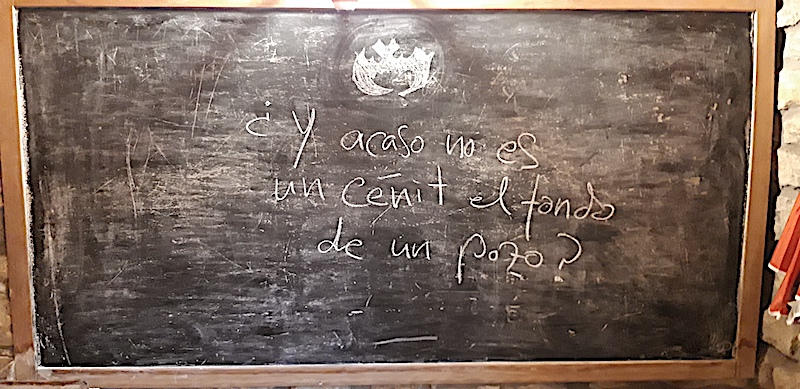 ¿Y acaso no es
un cénit el fondo
de un pozo?